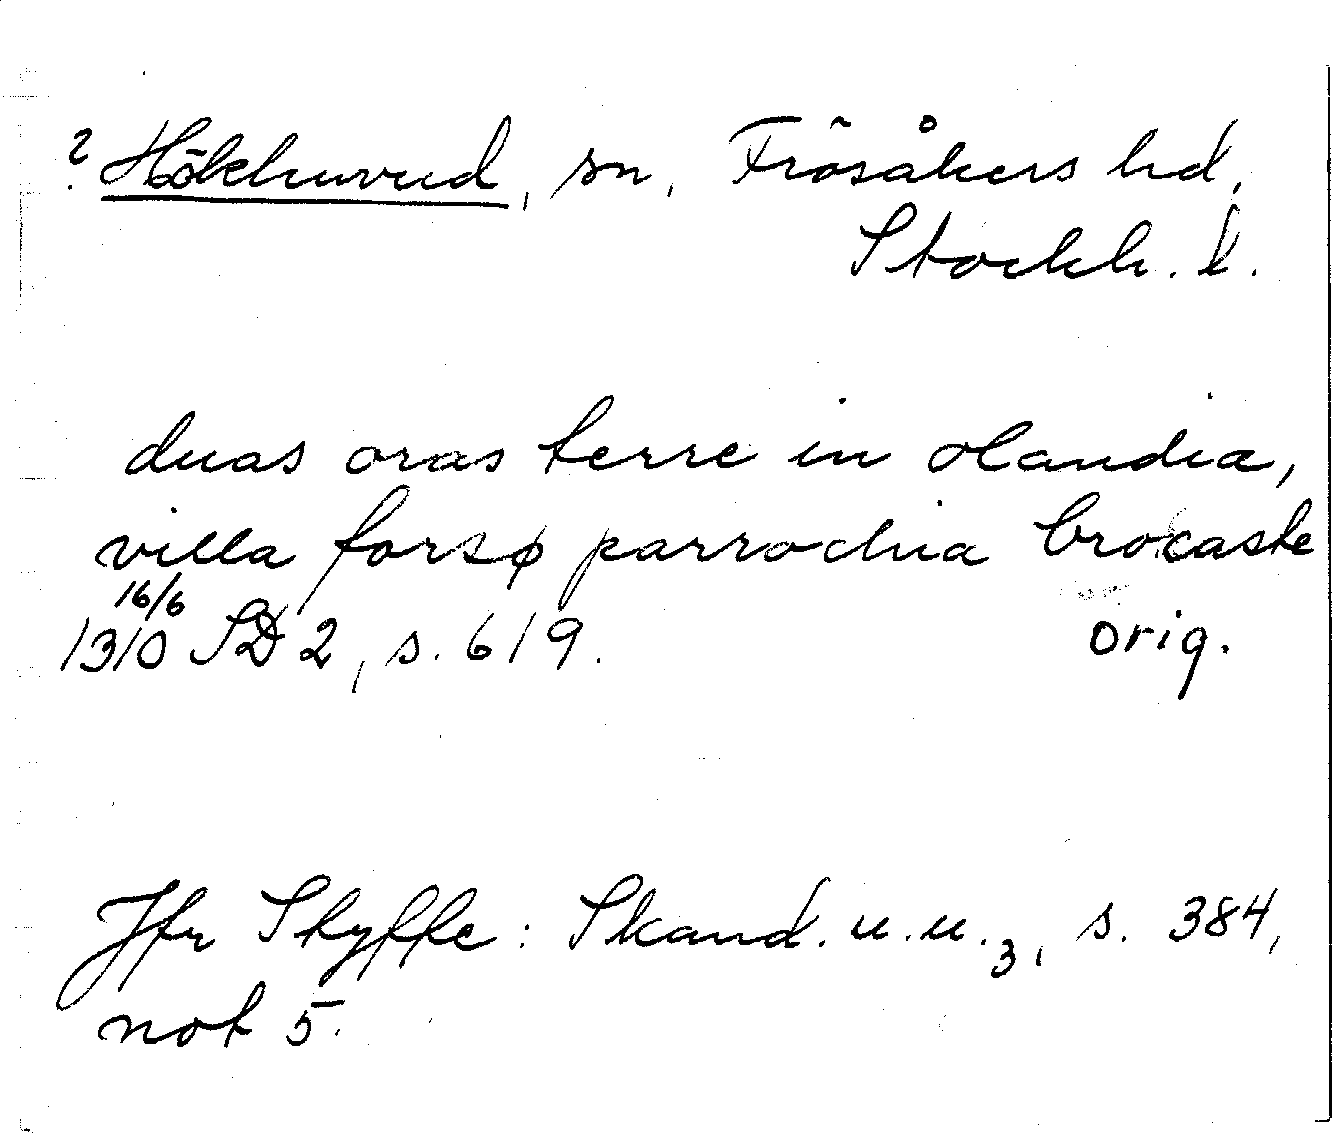 ? Hökhuvud, sn, Frösåkers hd,
Stockh. l.
duas oras terre in olandia,
villa forsø parrochia brocaste
16/6
1310 SD 2, s. 619. orig.
Jfr Styffe: Skand. u. u.3, s. 384,
not 5.